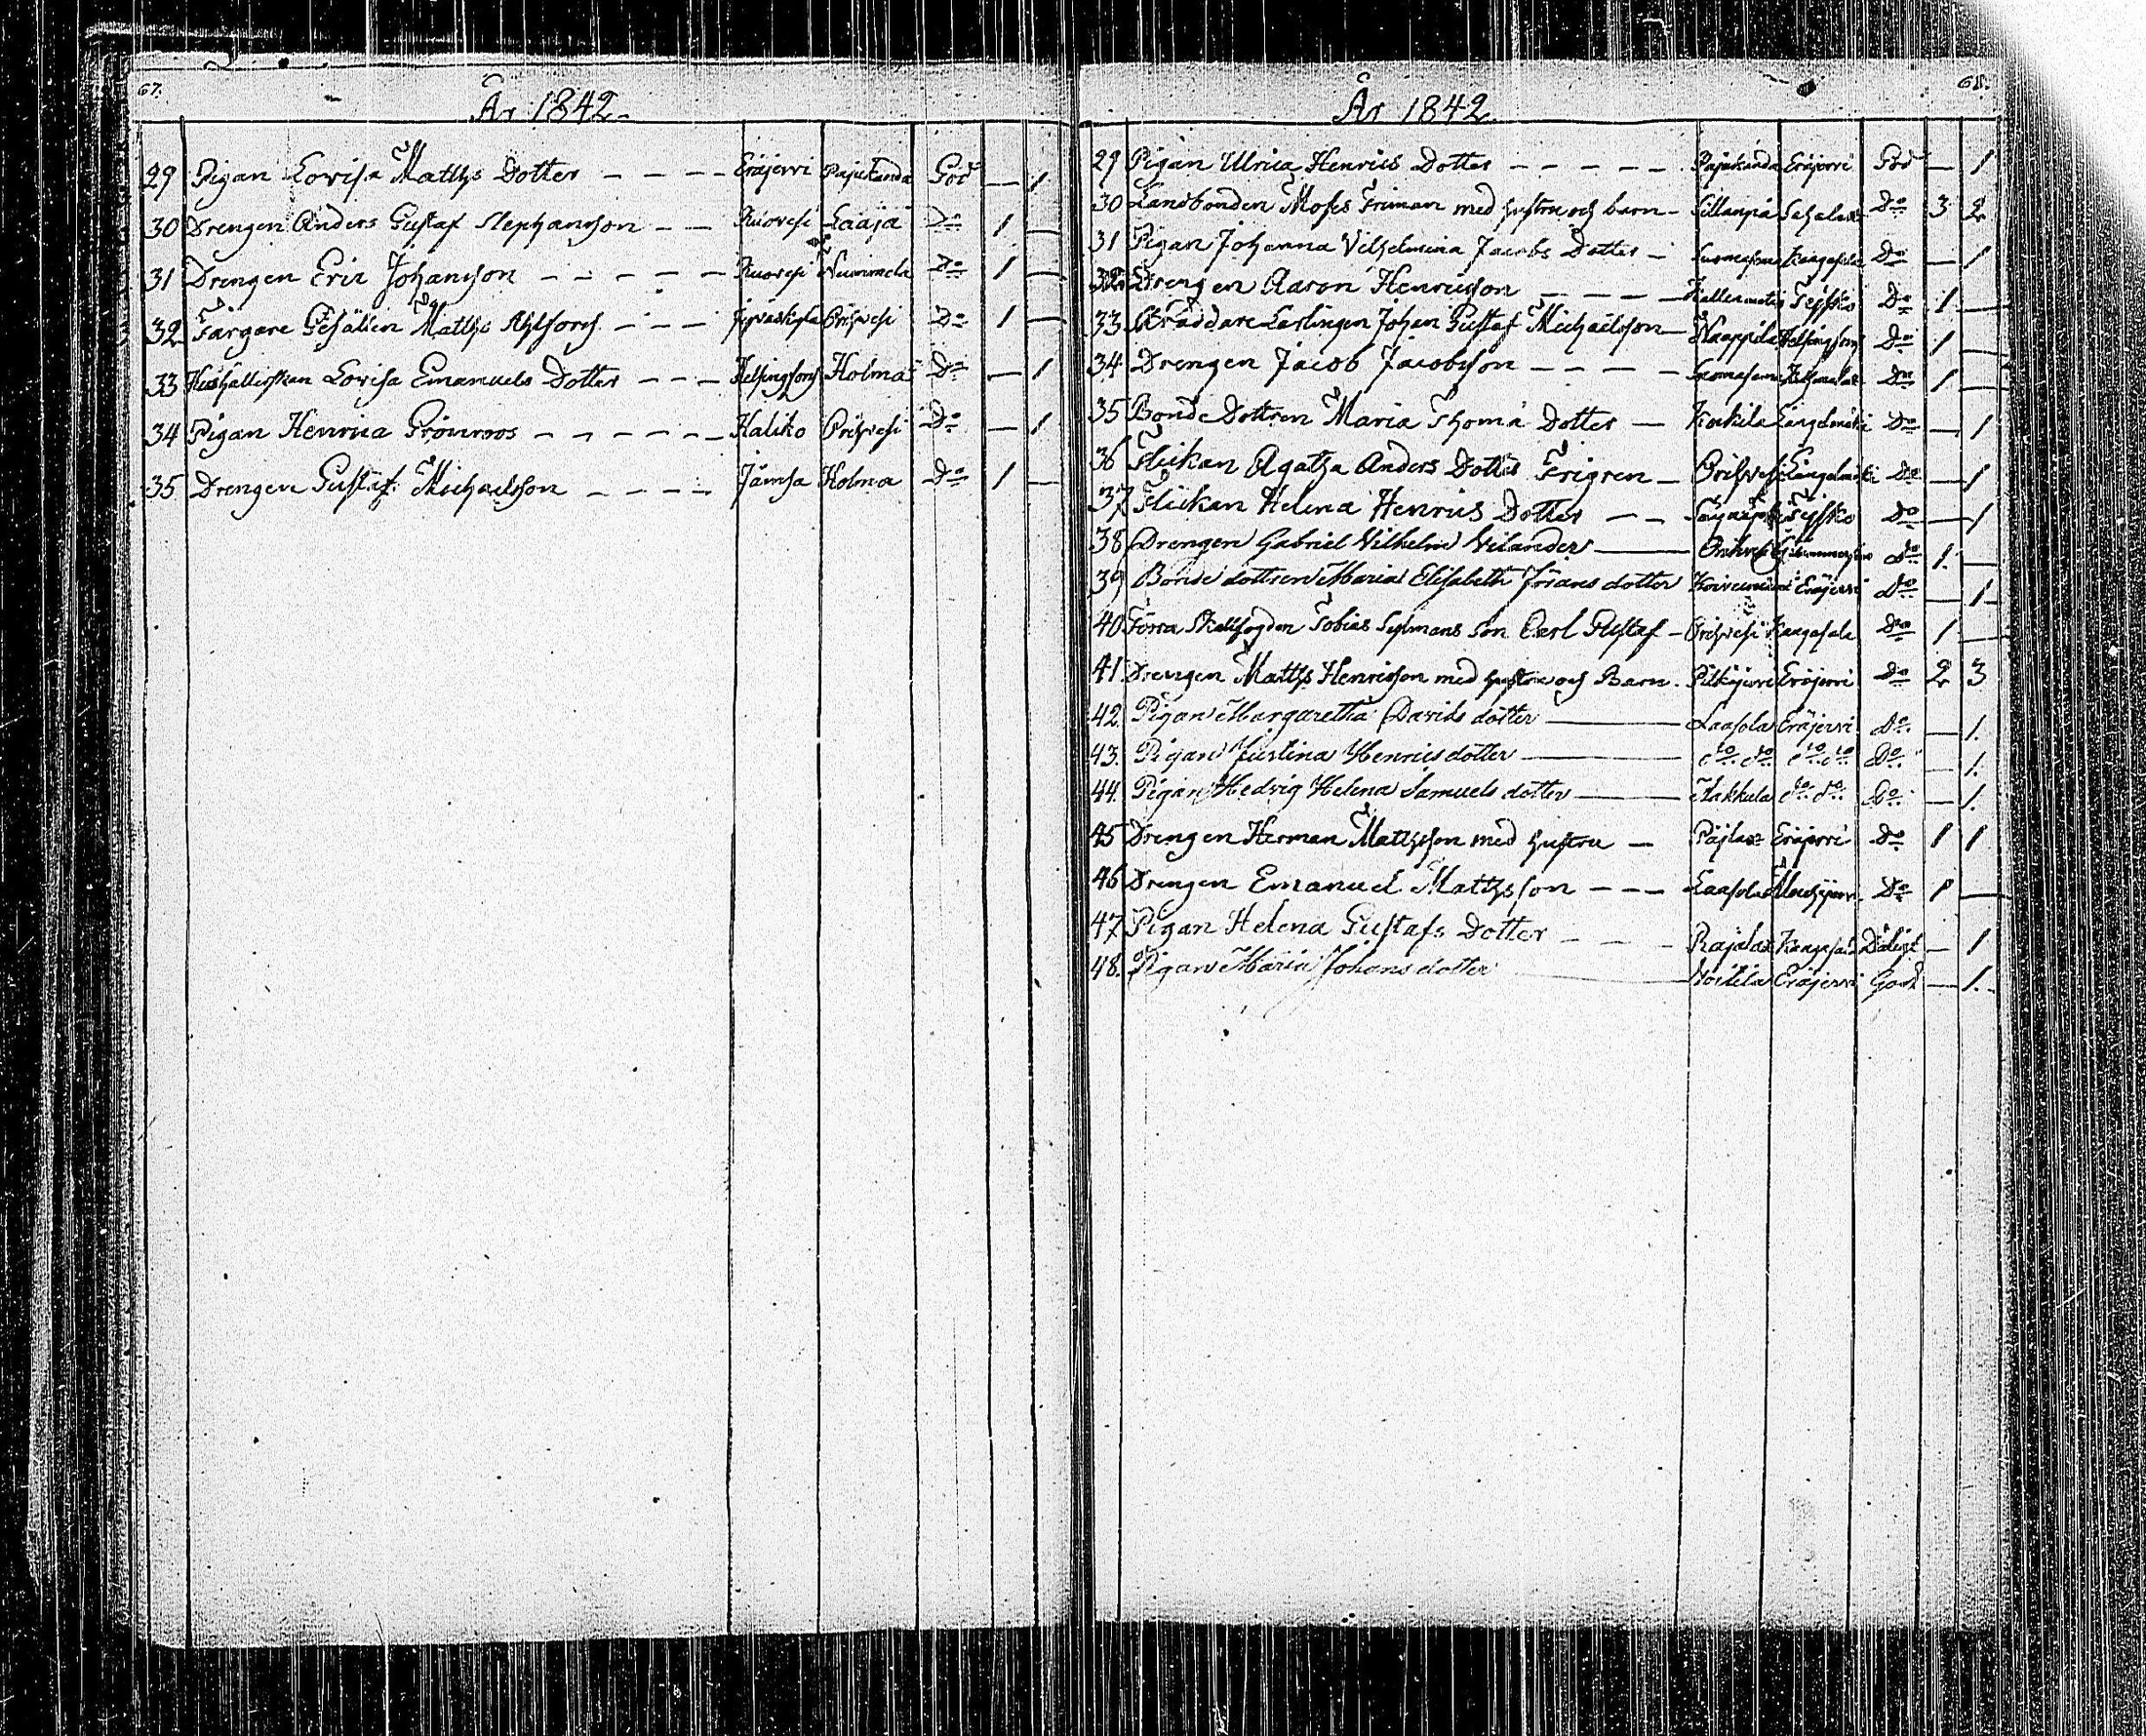 67.
År 1842.
29 Pigan Lovisa Matths Dotter - - - - Eräjervi Pajukanda God — 1
30 Drengen Anders Gustaf Stephansson - - Ruovesi Laaja Do 1 —
31 Drengen Eric Johansson - - - - - Ruovesi Nummela Do 1 —
32 Färgare Gesällen Matths Ahlfors - - - Jyväskylä Orihvesi Do 1 —
33 Hushållerskan Lovisa Emanuels Dotter - - - Helsingfors Holma Do — 1
34 Pigan Henrica Grönroos - - - - - - Haliko Orihvesi Do — 1
35 Drengen Gustaf Michaelsson - - - - Jämsä Holma Do 1 —
68.
År 1842
29 Pigan Ulrica Henrics Dotter - - - - - Pajukanda Eräjervi God — 1
30 Landbonden Moses Friman med hustru och barn - Sillanpää Sahalax Do 3 2
31 Pigan Johanna Vilhelmina Jacobs Dotter - Kangasala Do — 1
32 Drengen Aaron Henricsson - - - - Teisko Do 1 —
33 Skräddare Lärlingen Johan Gustaf Michaelsson - Helsingfors Do 1 —
34 Drengen Jacob Jacobsson - - - - - Do 1 —
35 Bonde Dottren Maria Thoma Dotter - Längelmäki Do — 1
36 Flickan Agatha Anders Dotter Frigren - Orihvesi Längelmäki Do — 1
37 Flickan Helena Henrics Dotter - - Teisko Do — 1
38 Drengen Gabriel Vilhelm Vilander — Orihvesi Do 1 —
39 Bonde dottren Maria Elisabeth Jörans dotter Koivuniemi Eräjervi do — 1
40 Förra Skallfogden Tobias Sylmans Son Carl Gustaf - Orihvesi Kangasala Do 1 —
41 Drengen Matths Henricsson med hustru och Barn. Pitkäjervi Eräjervi Do 2 3
42. Pigan Margaretha Davids dotter — Laasola Eräjervi do — 1.
43. Pigan Justina Henrics dotter — do do do do Do — 1.
44. Pigan Hedvig Helena Samuels dotter — Hakkula do do Do — 1.
45 Drengen Herman Mattsson med hustru - Päjlax Eräjervi Do 1 1
46 Drengen Emanuel Matthsson - - - Laasola Do 1 —
47 Pigan Helena Gustafs Dotter - - - Rajalax Kangasala Dåligt — 1
48. Pigan Maria Johans dotter — Eräjervi God — 1.